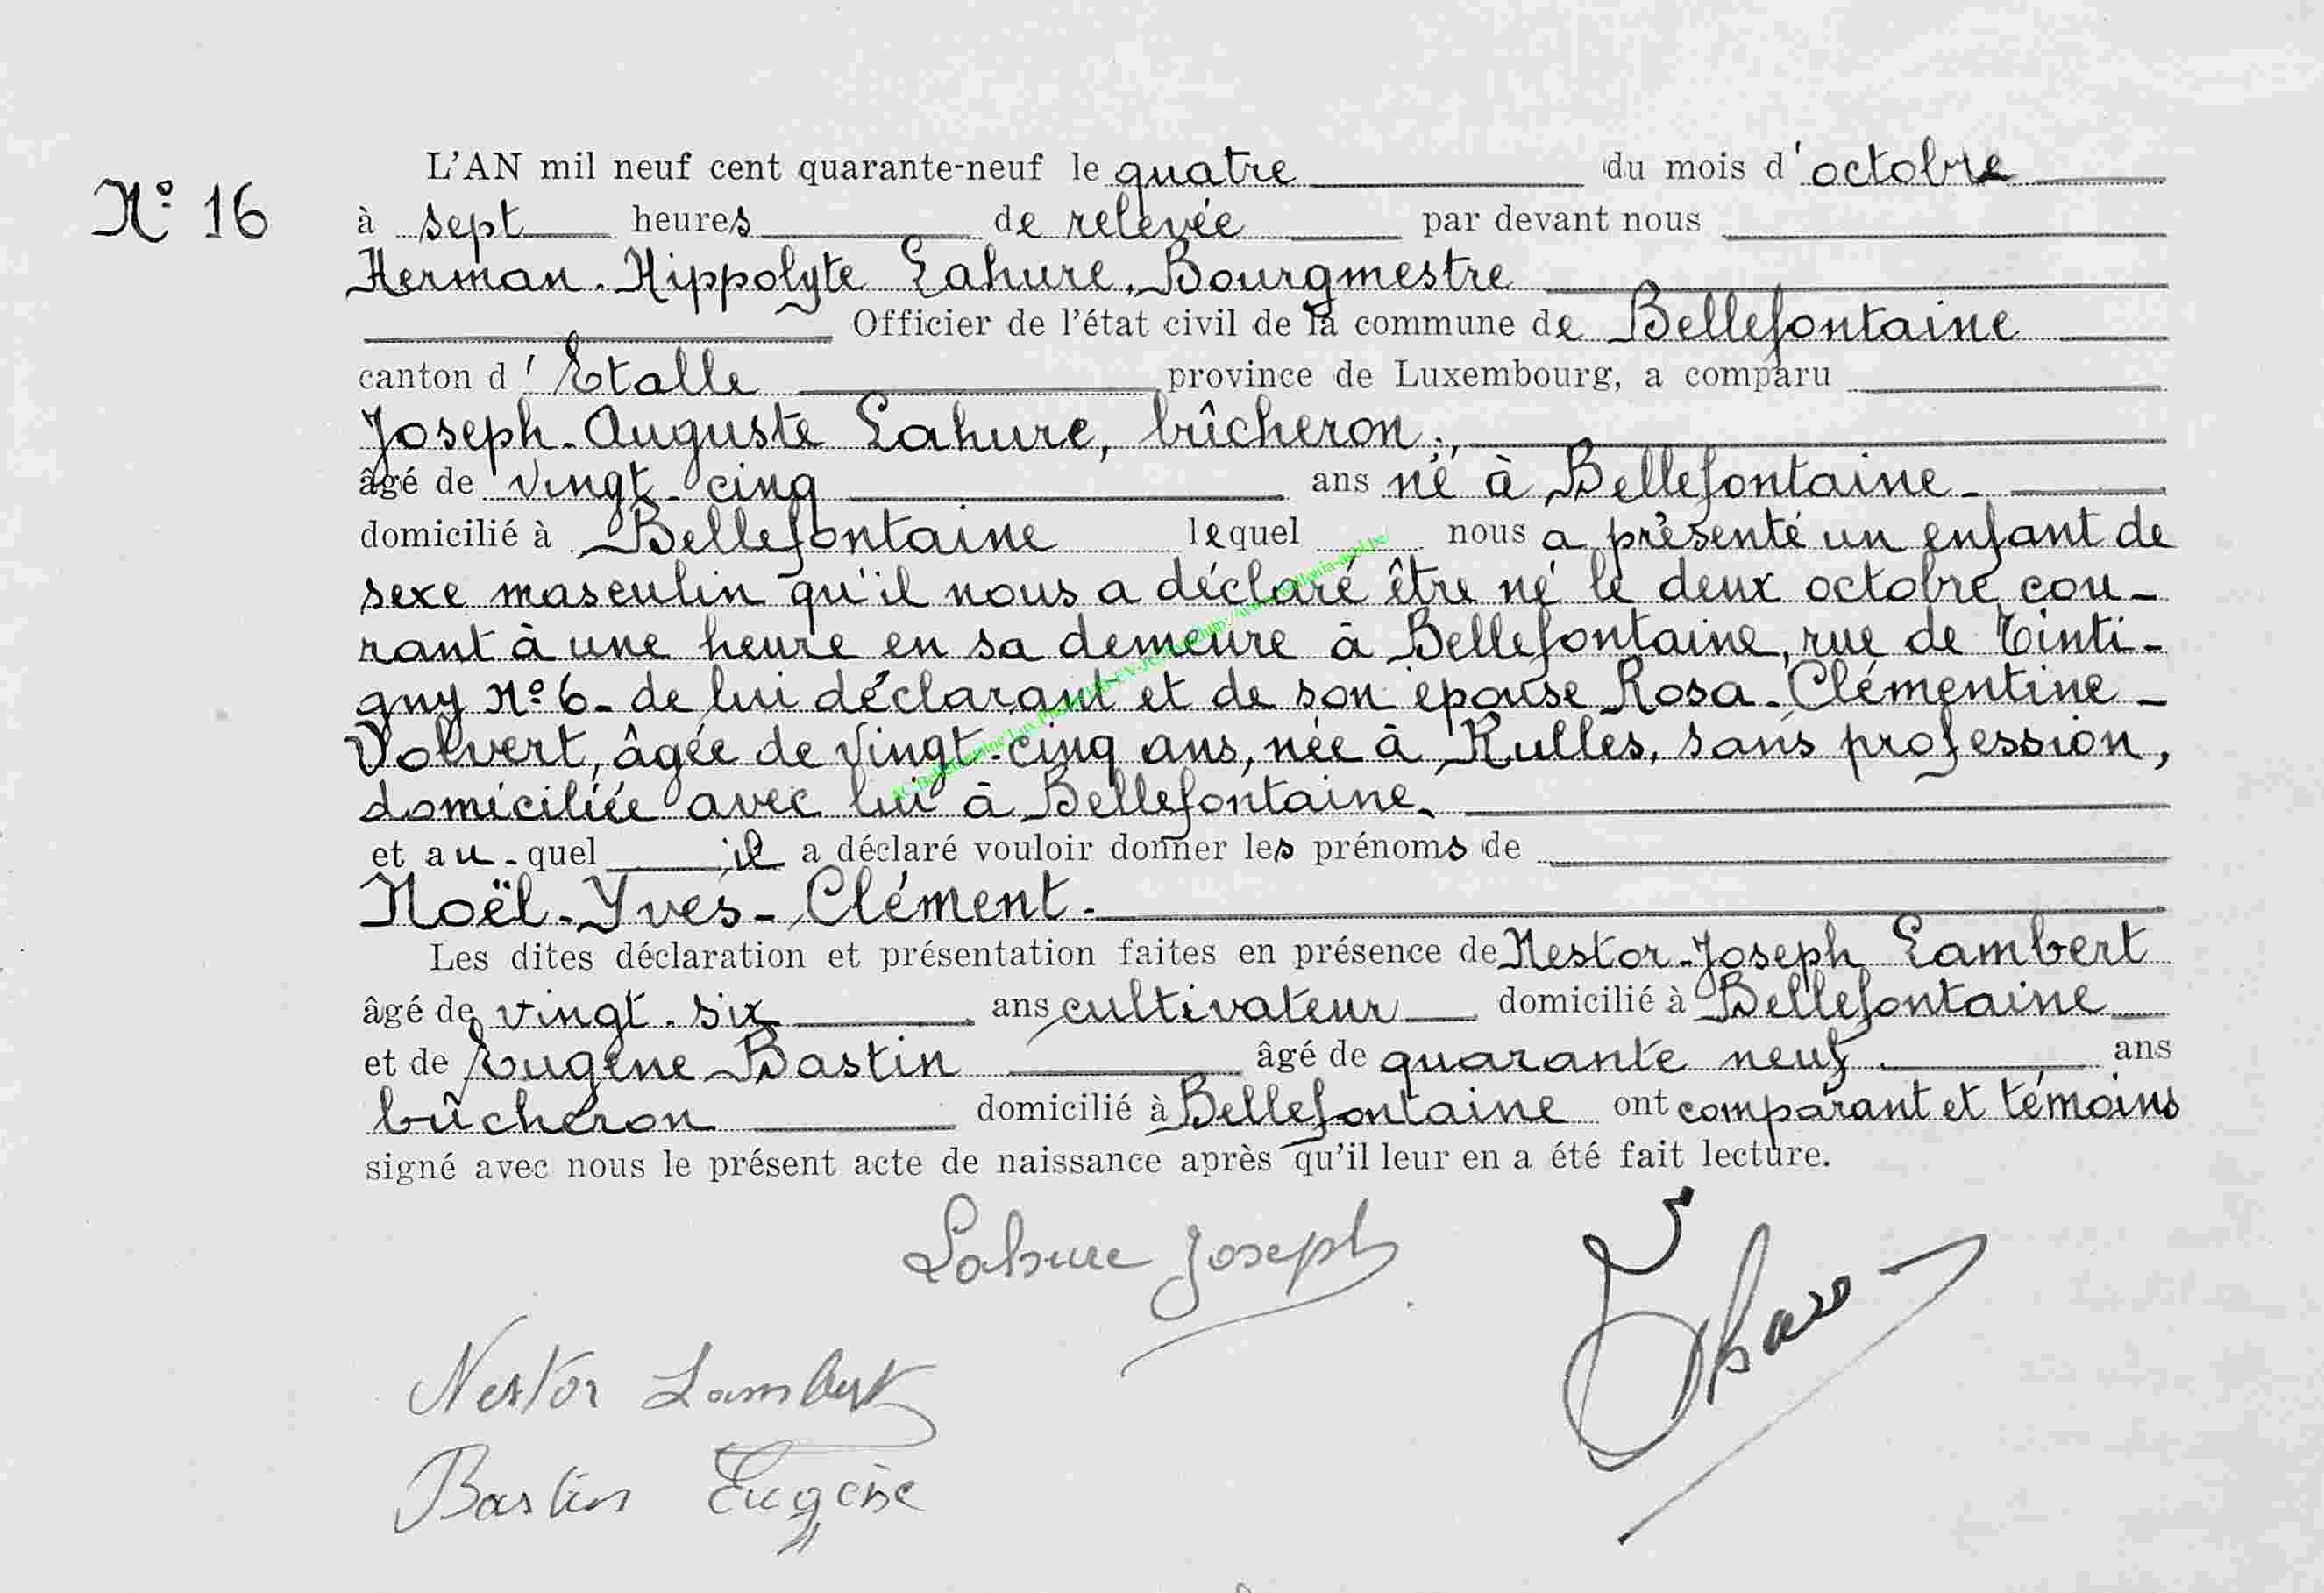 L'AN mil neuf cent quarante-neuf le quatre du mois d'octobre
N° 16
à sept heures de relevée par devant nous
Herman-Hippolyte Lahure, Bourgmestre
Officier de l'état civil de la commune de Bellefontaine
canton d'Etalle province de Luxembourg, a comparu
Joseph-Auguste Lahure, bûcheron,
âgé de vingt-cinq ans né à Bellefontaine-
domicilié à Bellefontaine lequel nous a présenté un enfant de
sexe masculin qu'il nous a déclaré être né le deux octobre cou-
rant à une heure en sa demeure à Bellefontaine, rue de Tinti-
gny N°6- de lui déclarant et de son épouse Rosa-Clémentine-
Volvert, âgée de vingt-cinq ans, née à Rulles, sans profession,
domiciliée avec lui à Bellefontaine,
et au-quel il a déclaré vouloir donner les prénoms de
Noël-Yves-Clément.
Les dites déclaration et présentation faites en présence de Nestor-Joseph Lambert
âgé de vingt-six ans cultivateur domicilié à Bellefontaine
et de Eugène Bastin âgé de quarante neuf ans
bûcheron domicilié à Bellefontaine ont comparant et témoins
signé avec nous le présent acte de naissance après qu'il leur en a été fait lecture.
Lahure Joseph
Nestor Lambert
Bastin Eugène